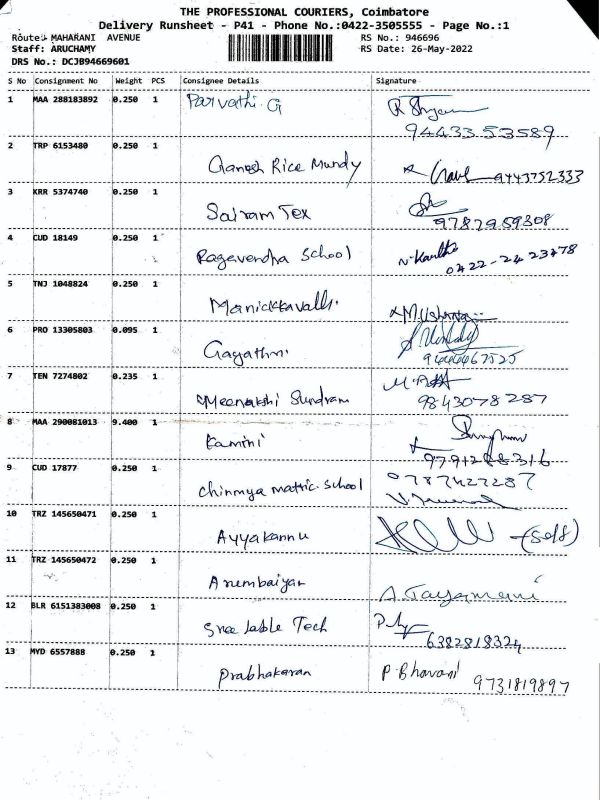 THE PROFESSIONAL COURIERS, Coimbatore
Delivery Runsheet - P41 - Phone No.:0422-3505555 - Page No.:1
Route: MAHARANI AVENUE RS No.: 946696
Staff: ARUCHAMY RS Date: 26-May-2022
DRS No.: DCJB94669601
S No Consignment No Weight PCS Consignee Details Signature
1 MAA 288183892 0.250 1 Parvathi. G
94433 53589
2 TRP 6153480 0.250 1
Ganesh Rice Mundy 9443752333
3 KRR 5374740 0.250 1
Sairam Tex 9787959308
4 CUD 18149 0.250 1
Ragavendha School 0422-2423478
5 TNJ 1048824 0.250 1
Manickkavalli.
6 PRO 13305803 0.095 1
Gayathri 9444467525
7 TEN 7274802 0.235 1
Meenakshi Sundram 9843078287
8 MAA 290081013 9.400 1
Kamini
9 CUD 17877 0.250 1
Chinmya matric. School 9787427287
10 TRZ 145650471 0.250 1
Ayyakannu (self)
11 TRZ 145650472 0.250 1
Arumbaiyar A. Jayamani
12 BLR 6151383008 0.250 1
Sree lable Tech 6382818324
13 MYD 6557888 0.250 1
Prabhakaran P. Bhavani 9731819897